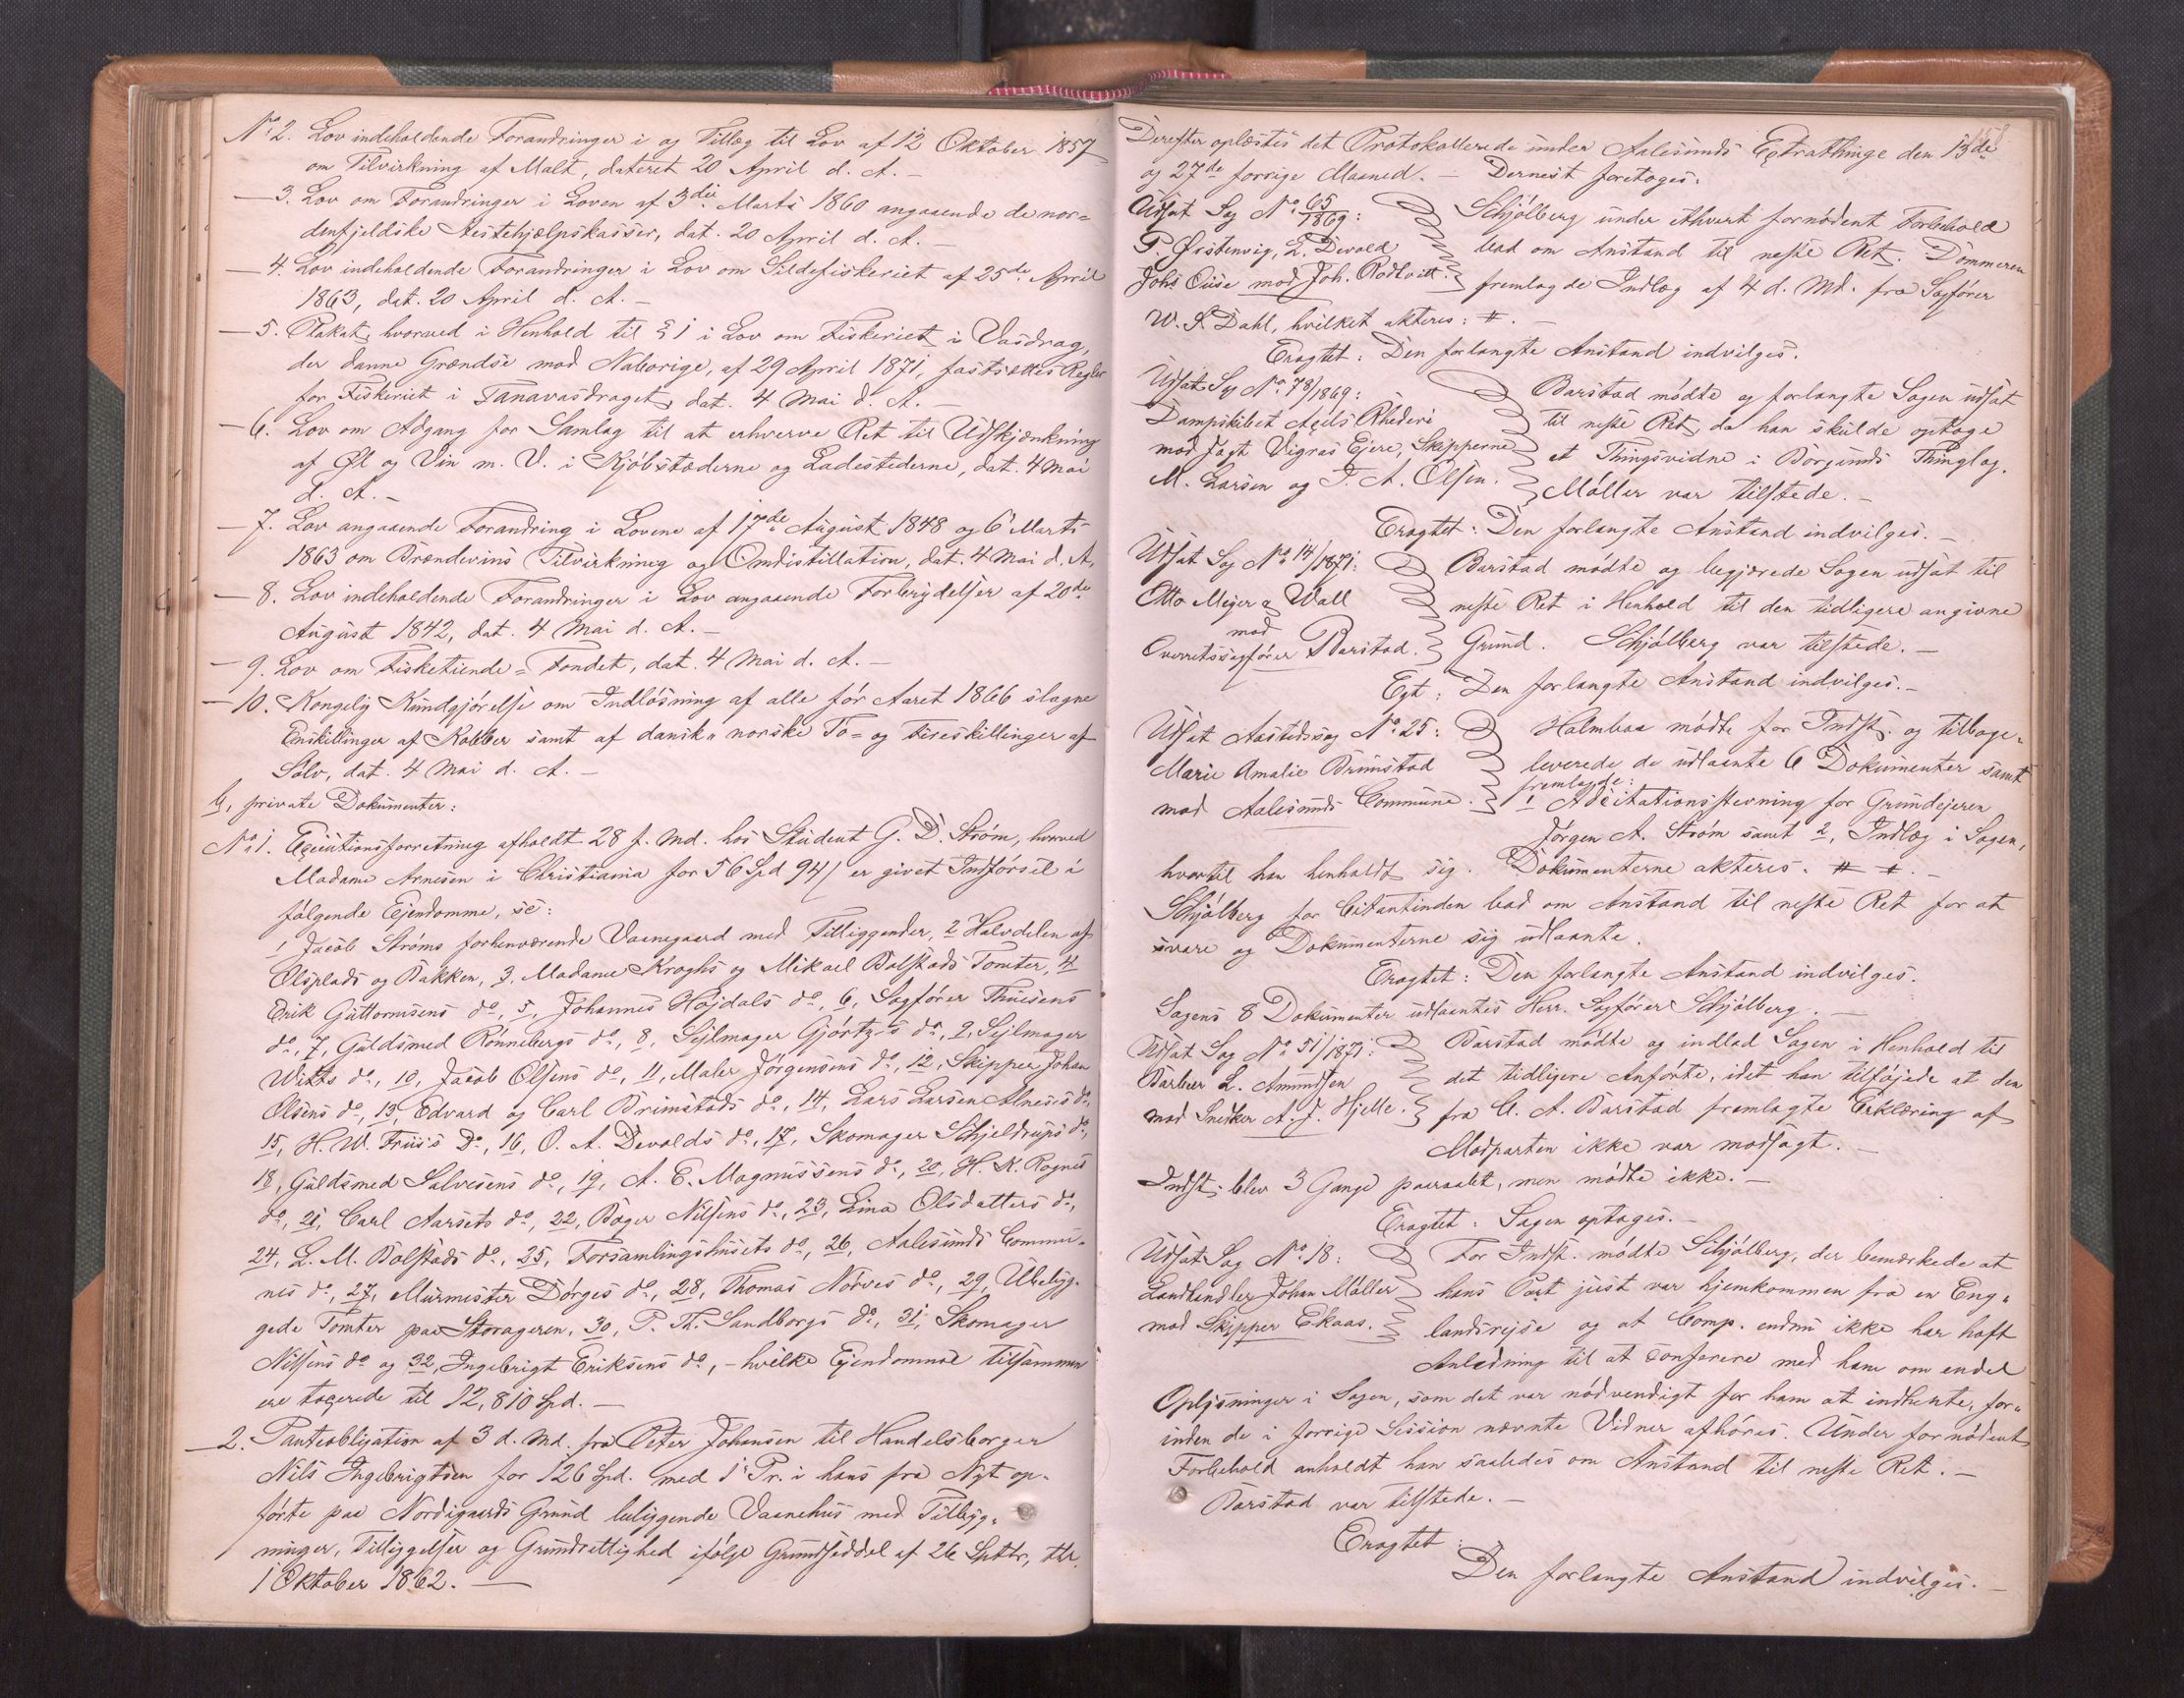 No 2. Lov indeholdende Forandringer i og Tillæg til Lov af 12 Oktober 1857
om Tilvirkning af Malt, dateret 20 April d. A. –
— 3. Lov om Forandringer i Loven af 3die Marts 1860 angaaende de nor-
denfjeldske Hestehjælpskasser, dat. 20 April d. A. –
— 4. Lov indeholdende Forandringer i Lov om Sildefiskeriet af 25de April
1863, dat. 20 April d. A. –
— 5. Plakat, hvorved i Henhold til § 1 i Lov om Fiskeriet i Vasdrag,
der danne Grændse mod Naborige, af 29 April 1871, fastsættes Regler
for Fiskeriet i Tanavasdraget, dat. 4 Mai d. A. –
— 6. Lov om Adgang for Samlag til at erhverve Ret til Udskjænkning
af Øl og Vin m. V. i Kjøbstæderne og Ladestederne, dat. 4 Mai
d. A. –
— 7. Lov angaaende Forandring i Lovene af 17de August 1848 og 6 Marts
1863 om Brændevins Tilvirkning og Omdistillation, dat. 4 Mai d. A.
— 8. Lov indeholdende Forandringer i Lov angaaende Forbrydelser af 20de
August 1842, dat. 4 Mai d. A. –
— 9. Lov om Fisketiende-Fondet, dat. 4 Mai d. A. –
— 10. Kongelig Kundgjørelse om Indløsning af alle før Aaret 1866 slagne
Enskillinger af Kobber samt af dansk-norske To- og Fireskillinger af
Sølv, dat. 4 Mai d. A. –
b, private Dokumenter:
No 1. Executionsforretning afholdt 28 f. Md. hos Student G. D. Strøm, hvorved
Madame Arnesen i Christiania for 56 Spd 94 / er givet Indførsel i
følgende Ejendomme, se:
1 Jacob Strøms forhenværende Vaanegaard med Tilliggender, 2 Halvdelen af
Olsplads og Bakken, 3, Madame Kroghs og Mikael Balstads Tomter, 4
Erik Guttormsens do, 5, Johannes Højdals do, 6, Sagfører Thuesens
do, 7, Guldsmed Rønnebergs do, 8, Sejlmager Gjørtz's do, 9, Sejlmager
Witts do, 10, Jacob Olsens do, 11, Maler Jørgensens do, 12, Skipper Johan
Olsens do, 13, Edvard og Carl Brimstads do, 14, Lars Larsen Alnæs's do,
15, H. W. Friis's Do, 16, O. A. Devolds do, 17, Skomager Schjeldrups do,
18, Guldsmed Salvesens do, 19, A. E. Magnussens do, 20, H. K. Rognes
do, 21, Carl Aarsets do, 22, Bager Nilsens do, 23, Lina Olsdatters do,
24, L. M. Balstads do, 25, Forsamlingshusets do, 26, Aalesunds Commu-
nes do, 27, Murmester Dørges do, 28, Thomas Nørves do, 29, Ubebyg-
gede Tomter paa Storageren, 30, P. Th. Sandborgs do, 31, Skomager
Nilsens do og 32, Ingebrigt Eriksens do, – hvilke Ejendomme tilsammen
ere taxerede til 12,810 Spd. –
— 2. Panteobligation af 3 d. Md. fra Peter Johansen til Handelsborger
Nils Ingebrigtsen for 126 Spd. med 1 Pr. i hans fra Nyt op-
førte paa Nordigaards Grund beliggende Vaanehus med Tilbyg-
ninger, Tilliggelser og Grundrettighed ifølge Grundseddel af 26 Septbr, ttr.
1 Oktober 1862. —
Derefter oplæstes det Protokollerede under Aalesunds Extrathinge den 13de
og 27de forrige Maaned. – Dernest foretoges:
Udsat Sag No 65/1869:
P. Østensvig, L. Devold
Johs Ouse mod Joh. Rodtvitt.
Schjølberg under ethvert fornødent Forbehold
bad om Anstand til neste Ret. Dommeren
fremlagde Indlæg af 4 d. Md. fra Sagfører
W. S. Dahl, hvilket akteres: #. –
Eragtet: Den forlangte Anstand indvilges.
Udsat Sag No 78/1869:
Dampskibet Ægils Rhederi
mod Jagt Vigras Ejere, Skipperne
M. Larsen og T. A. Olsen.
Barstad mødte og forlangte Sagen udsat
til neste Ret, da han skulde optage
et Thingsvidne i Borgunds Thinglag.
Møller var tilstede. –
Eragtet: Den forlangte Anstand indvilges. –
Udsat Sag No 14/1871:
Otto Mejer & Wall
mod
Overretssagfører Barstad.
Barstad mødte og begjærede Sagen udsat til
neste Ret i Henhold til den tidligere angivne
Grund. Schjølberg var tilstede. –
Egt: Den forlangte Anstand indvilges. –
Udsat Aastedssag No 25:
Marie Amalie Brimstad
mod Aalesunds Commune.
Holmboe mødte for Indst. og tilbage-
leverede de udlaante 6 Dokumenter samt
fremlagde:
1 Adcitationsstevning for Grundejeren
Jørgen A. Strøm samt 2, Indlæg i Sagen,
hvortil han henholdt sig. Dokumenterne akteres. # #. –
Schjølberg for Citantinden bad om Anstand til neste Ret for at
svare og Dokumenterne sig udlaante.
Eragtet: Den forlangte Anstand indvilges.
Sagens 8 Dokumenter udlaantes Herr. Sagfører Schjølberg. –
Udsat Sag No 51/1871:
Barber L. Amundsen
mod Snedker A. J. Hjelle.
Barstad mødte og indlod Sagen i Henhold til
det tidligere Anførte, idet han tilføjede at den
fra C. A. Barstad fremlagte Erklæring af
Modparten ikke var modsagt. –
Indst. blev 3 Gange paaraabt, men mødte ikke. –
Eragtet: Sagen optages. –
Udsat Sag No 18:
Landhandler Johan Møller
mod Skipper Ekaas.
For Indst. mødte Schjølberg, der bemærkede at
hans Part just var hjemkommen fra en Eng-
landsrejse og at Comp. endnu ikke har haft
Anledning til at conferere med ham om endel
Oplysninger i Sagen, som det var nødvendigt for ham at indhente, for-
inden de i forrige Session nævnte Vidner afhøres. Under fornødent
Forbehold anholdt han saaledes om Anstand til neste Ret. –
Barstad var tilstede. –
Eragtet:
Den forlangte Anstand indvilges. –